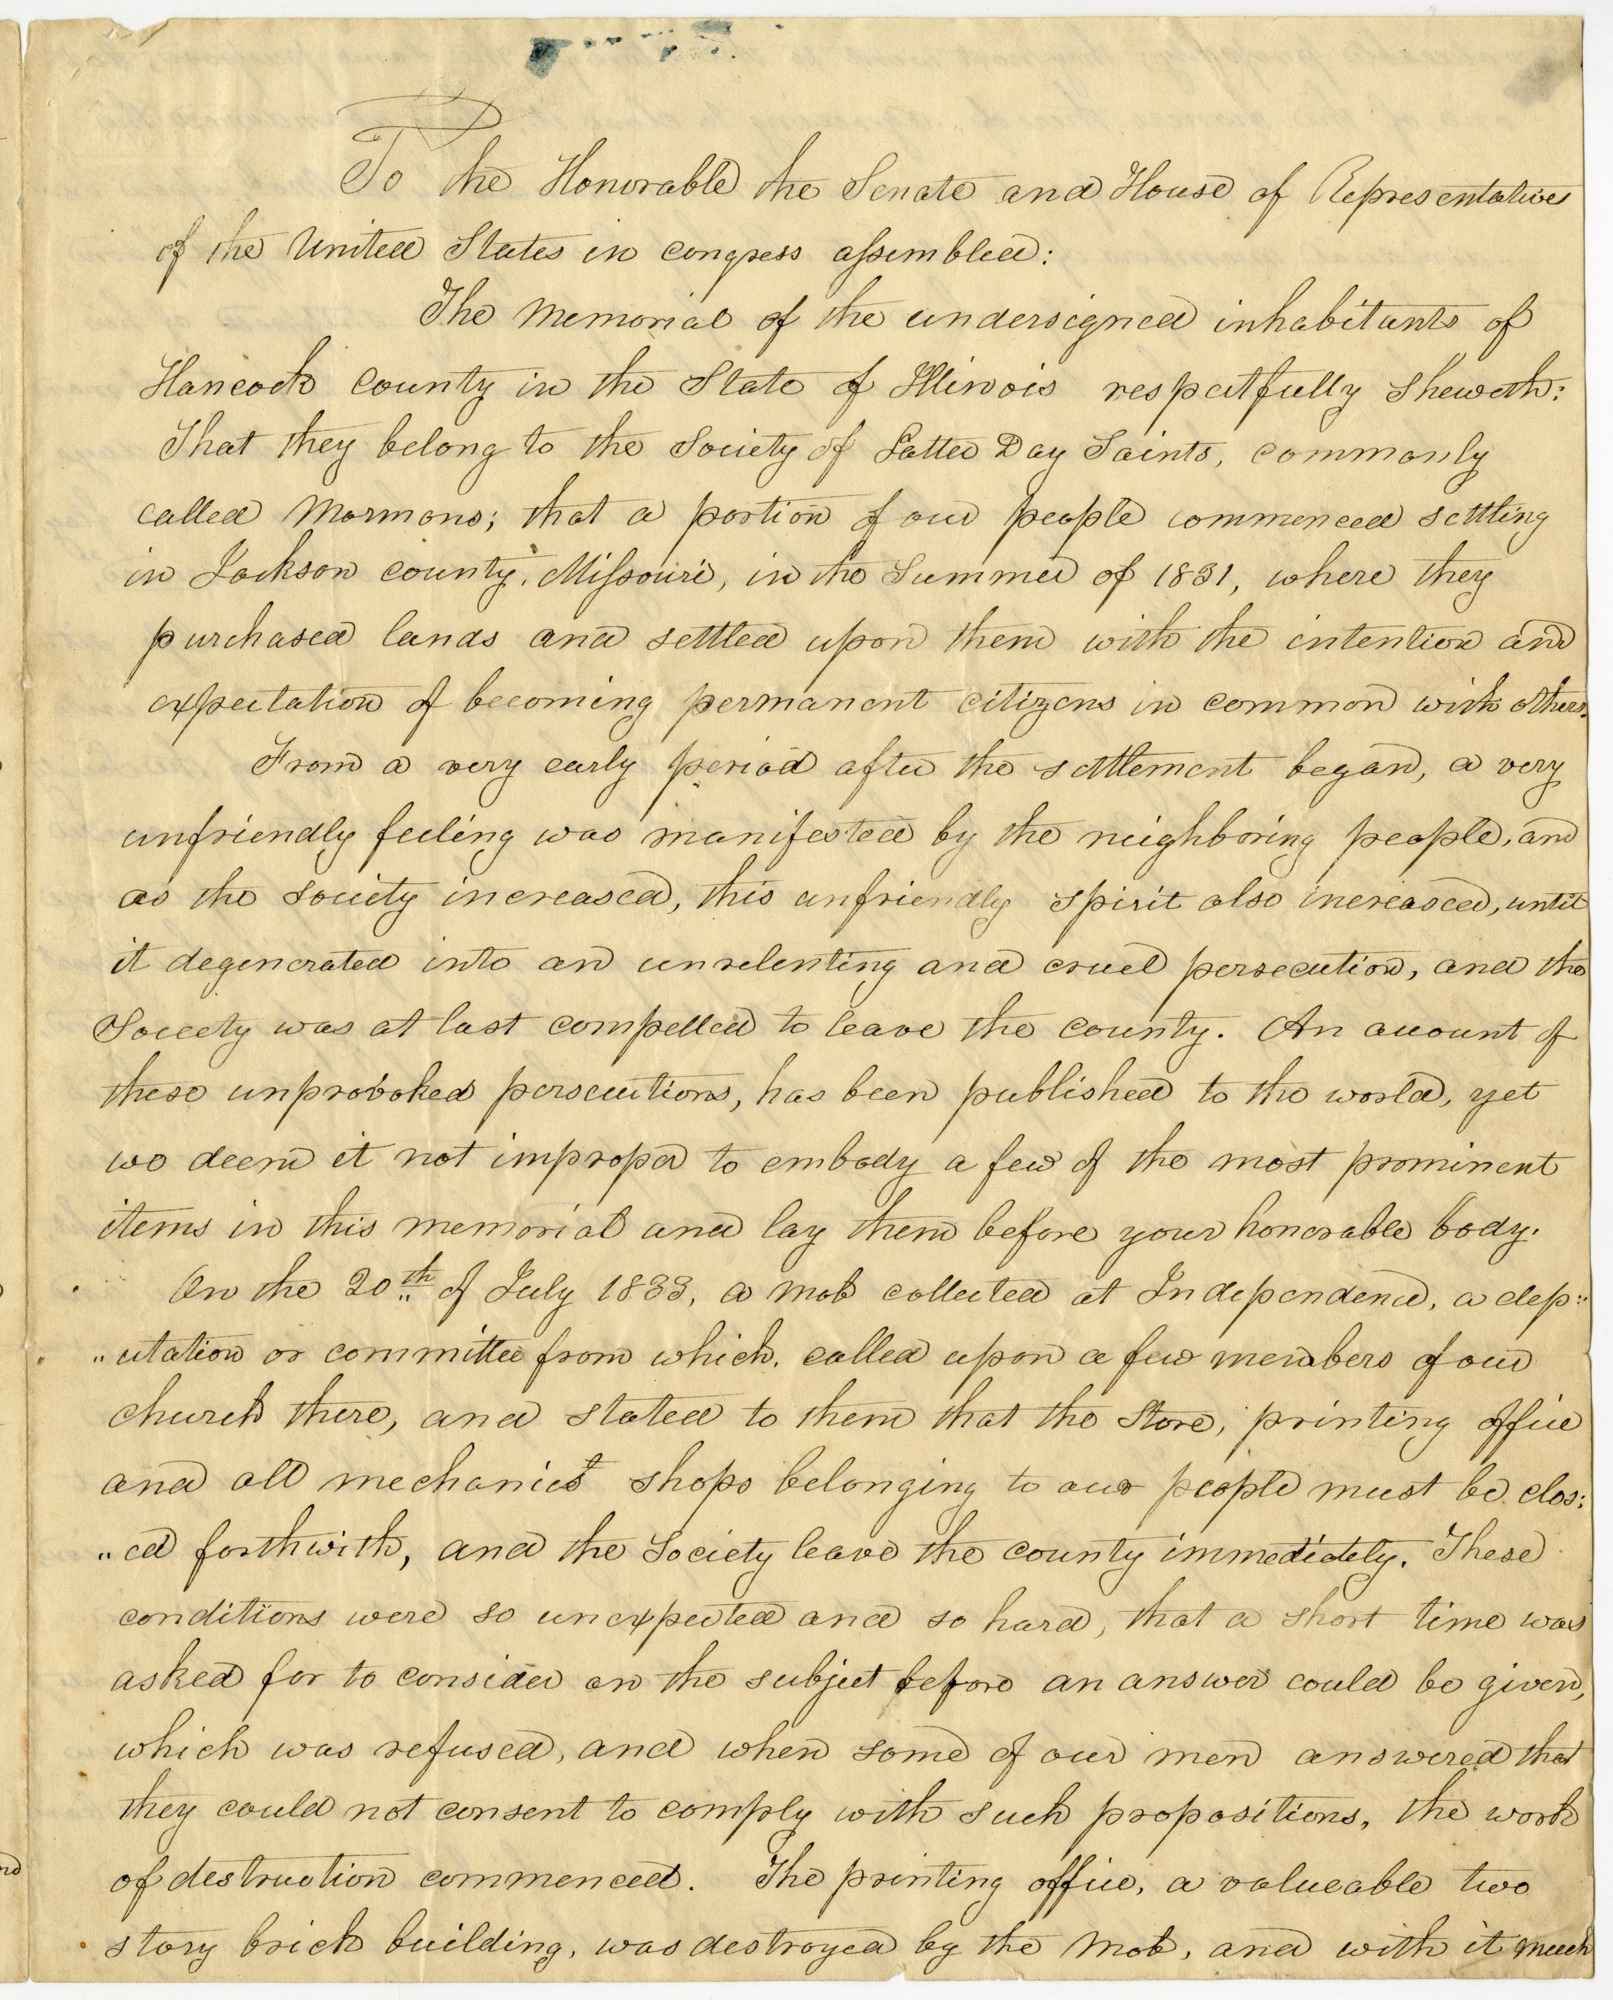 To the Honorable the Senate and House of Representatives
of the United States in congress assembled:
The Memorial of the undersigned inhabitants of
Hancock County in the State of Illinois respectfully sheweth:
That they belong to the Society of Latter Day Saints, commonly
called Mormons; that a portion of our people commenced settling
in Jackson county, Missouri, in the Summer of 1831, where they
purchased lands and settled upon them with the intention and
expectation of becoming permanent citizens in common with others.
From a very early period after the settlement began, a very
unfriendly feeling was manifested by the neighboring people, and
as the society increased, this unfriendly spirit also increased, until
it degenerated into an unrelenting and cruel persecution, and the
Society was at last compelled to leave the county. An account of
these unprovoked persecutions, has been published to the world, yet
we deem it not improper to embody a few of the most prominent
items in this memorial and lay them before your honorable body.
On the 20th of July 1833, a mob collected at Independence, a dep:
"utation or committee from which, called upon a few members of our
church there, and stated to them that the Store, printing office
and all mechanic shops belonging to our people must be clos:
"ed forthwith, and the Society leave the county immediately. These
conditions were so unexpected and so hard, that a short time was
asked for to consider on the subject before an answer could be given,
which was refused, and when some of our men answered that
they could not consent to comply with such propositions, the work
of destruction commenced. The printing office, a valueable two
story brick building, was destroyed by the Mob, and with it much